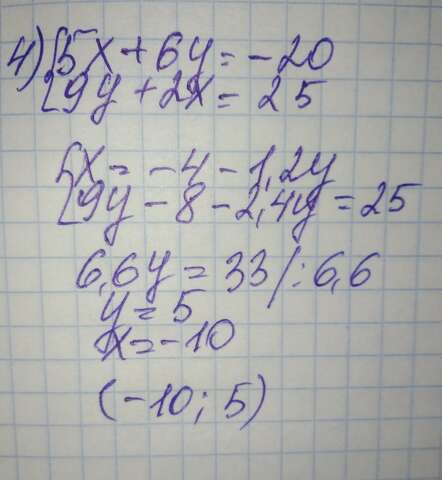 4) { 5x + 6y = -20
{ 9y + 2x = 25
{ x = -4 - 1,2y
{ 9y - 8 - 2,4y = 25
6,6y = 33 /:6,6
y = 5
x = -10
(-10; 5)